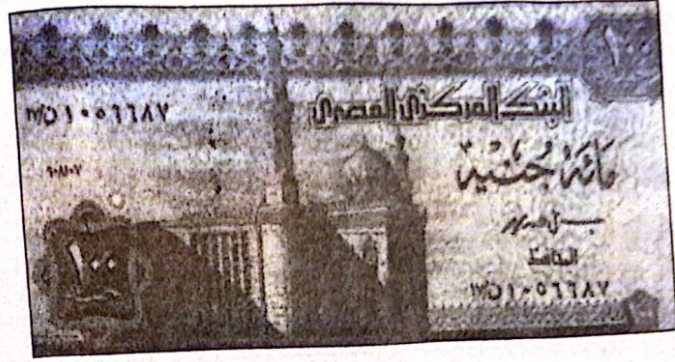 ١٠٠
البنك المركزي المصري
١٠٥٦٦٨٧
مائة جنيه
المحافظ
١٠٠
١٠٥٦٦٨٧